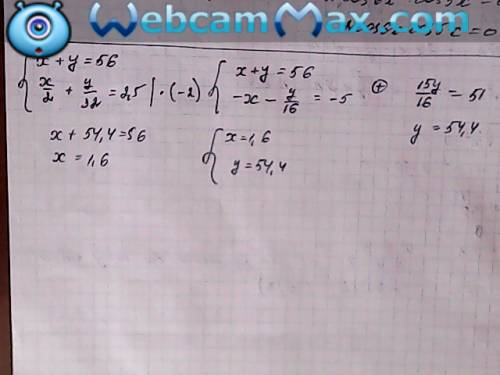 WebcamMax.com
x + y = 56
x/2 + y/32 = 2,5 | · (-2)
x + y = 56
-x - y/16 = -5
⊕
15y/16 = 51
y = 54,4
x + 54,4 = 56
x = 1,6
x = 1,6
y = 54,4